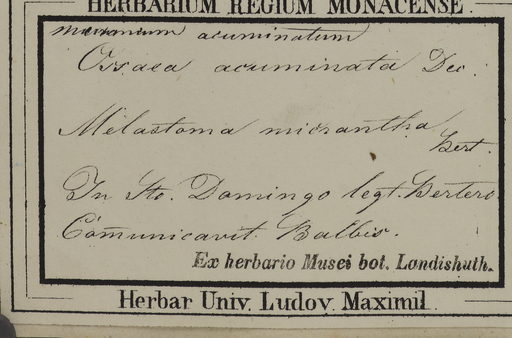 HERBARIUM REGIUM MONACENSE.
acuminatum
Ossaea acuminata Dec.
Melastoma micrantha
Bert.
In Sto. Domingo legt. Bertero.
Communicavit. Balbis.
Ex herbario Musei bot. Landishuth.
Herbar Univ. Ludov. Maximil.